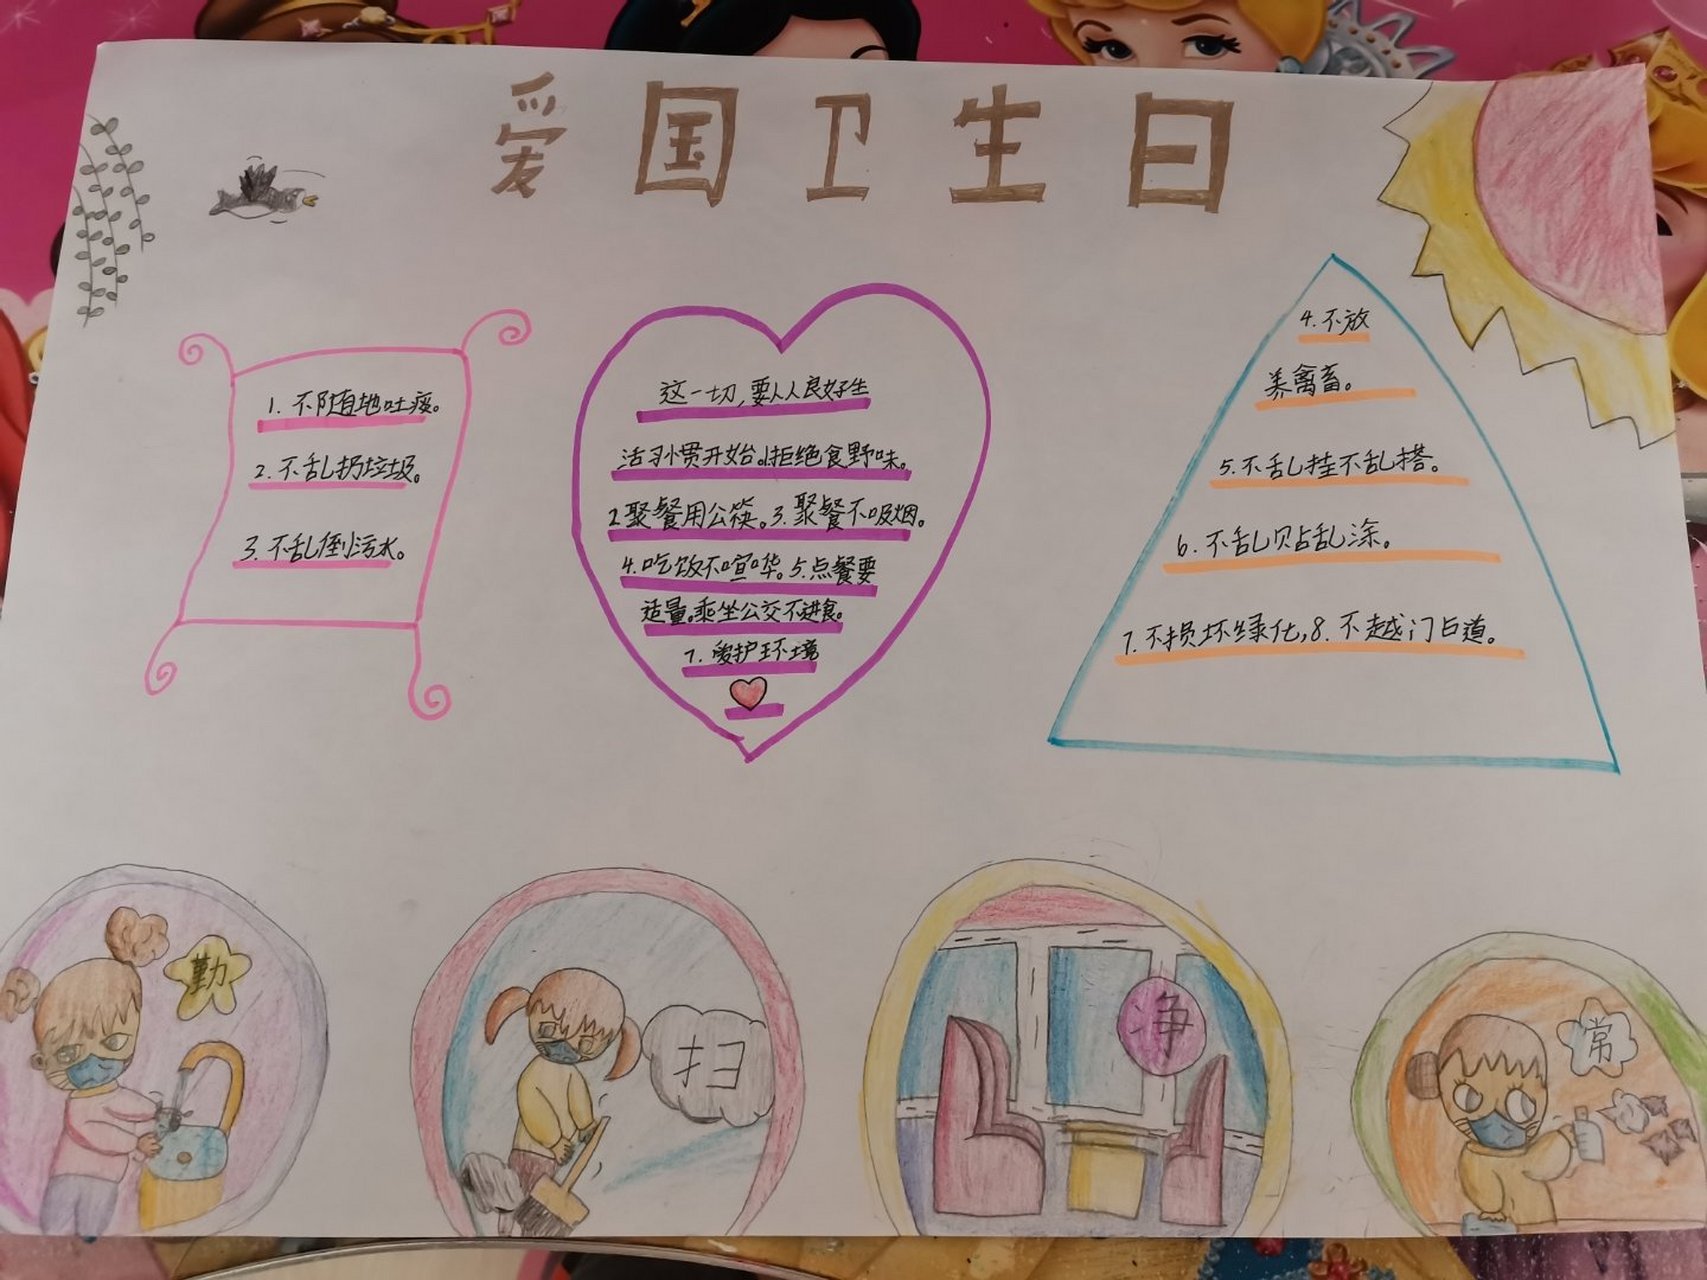 爱国卫生日
1. 不随地吐痰。
2. 不乱扔垃圾。
3. 不乱倒污水。
这一切,要人人良好生
活习惯开始。1拒绝食野味。
2聚餐用公筷。3.聚餐不吸烟。
4.吃饭不喧哗。5.点餐要
适量。乘坐公交不进食。
7. 爱护环境
4.不放
养禽畜。
5.不乱挂不乱搭。
6.不乱贴乱涂。
7.不损坏绿化,8.不越门占道。
勤
扫
净
常